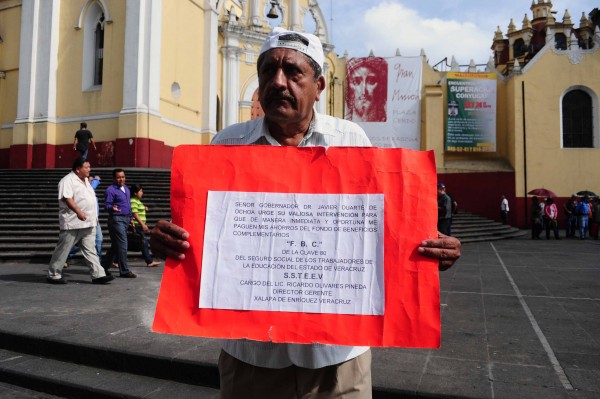 SEÑOR GOBERNADOR DR. JAVIER DUARTE DE
OCHOA URGE SU VALIOSA INTERVENCIÓN PARA
QUE DE MANERA INMEDIATA Y OPORTUNA ME
PAGUEN MIS AHORROS DEL FONDO DE BENEFICIOS
COMPLEMENTARIOS
"F. B. C."
DE LA CLAVE 60
DEL SEGURO SOCIAL DE LOS TRABAJADORES DE
LA EDUCACIÓN DEL ESTADO DE VERACRUZ
S.S.T.E.E.V
CARGO DEL LIC. RICARDO OLIVARES PINEDA
DIRECTOR GERENTE
XALAPA DE ENRÍQUEZ VERACRUZ
Gran
ENCUENTRO
SUPERACIÓN
CONYUGAL